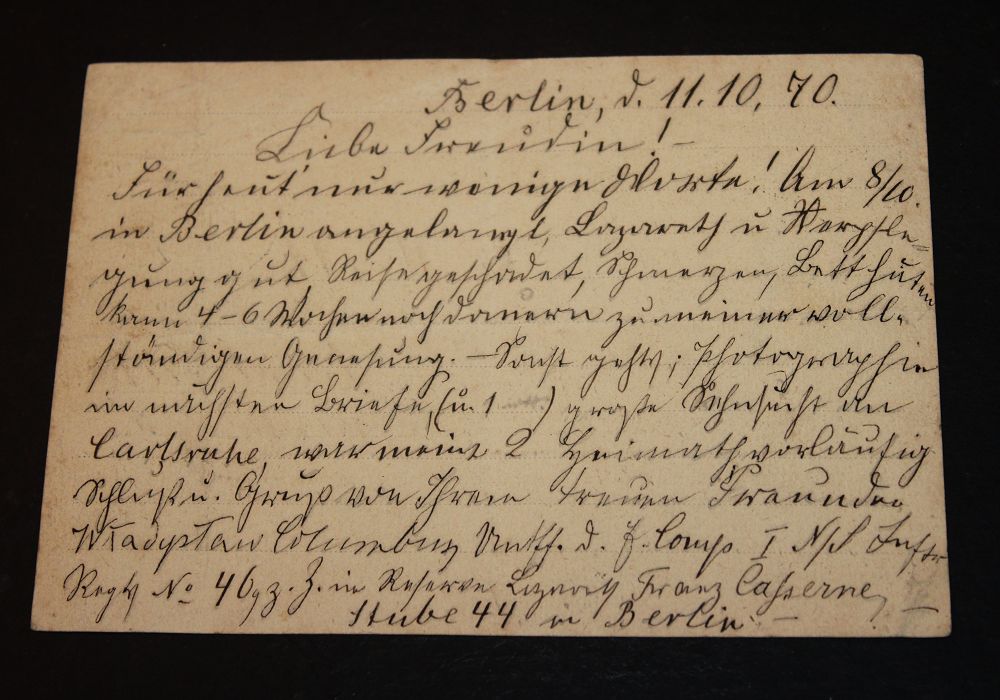 Berlin, d. 11.10.70.
Liebe Freundin! –
Für heut' nur wenige Worte! Am 8/10.
in Berlin angelangt, Lazareth u Verpfle=
gung gut, Reise geschadet, Schmerzen, Betthüten
kann 4–6 Wochen noch dauern zu meiner voll-
ständigen Genesung. – Sonst gehts; Photographie
im nächsten Briefe, (u. 1 ) große Sehnsucht an
Carlsruhe, war meine 2 Heimath vorläufig
Schluß u. Gruß von Ihrem treuen Freunde
Wladyslaw Columbus Untff. d. Comp I N/S Inftr
Regts No 46, z. Z. in Reserve Lazareth Franz Casserne, –
Stube 44 in Berlin. –